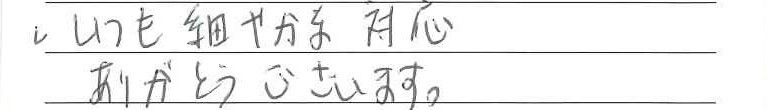 い いつも 細やかな 対応
ありがとう ございます。